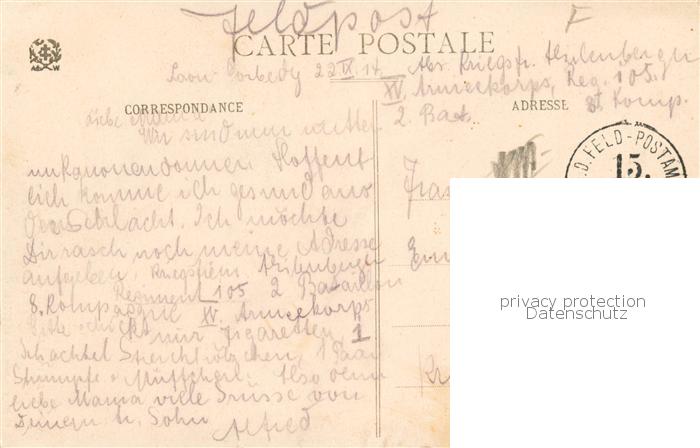 Feldpost
F
CARTE POSTALE
Laon 22 IX 14
Abs. Kriegsfr.
XV Armeekorps, Reg. 105.
2. Bat. 8t Komp.
CORRESPONDANCE
ADRESSE
Liebe Mama
Wir sind nun mitten
im Kanonendonner. Hoffent
lich komme ich gesund aus
der Schlacht. Ich möchte
Dir rasch noch meine Adresse
aufgeben. Kriegsfreiw.
Regiment 105 2 Bataillon
8. Kompagnie XV. Armeekorps
Bitte schickt mir Zigaretten 1
Schachtel Streichhölzchen, 1 Paar
Strümpfe Also denn
liebe Mama viele Grüsse von
Deinem tr. Sohn
Alfred
Frau
K.D. FELD-POSTAMT
15.
privacy protection
Datenschutz